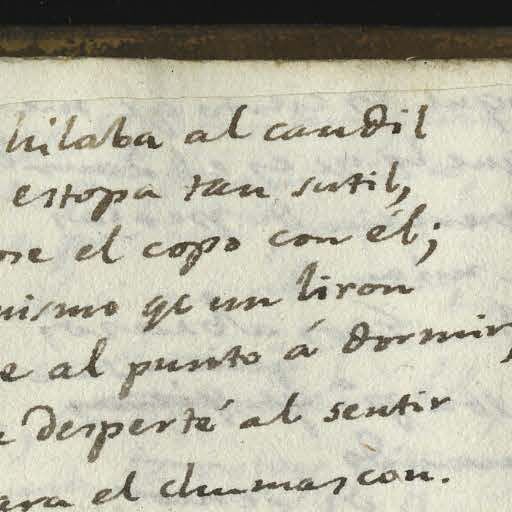 hilaba al candil
estopa tan sutil,
ose el copo con él;
mismo qe un liron
e al punto á dormir,
e desperté al sentir
ara el chumascon.